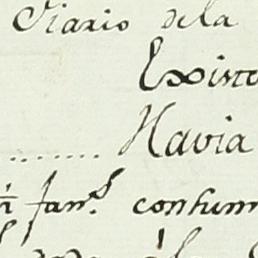 Diario dela
Existe
Havia
fam.s consum